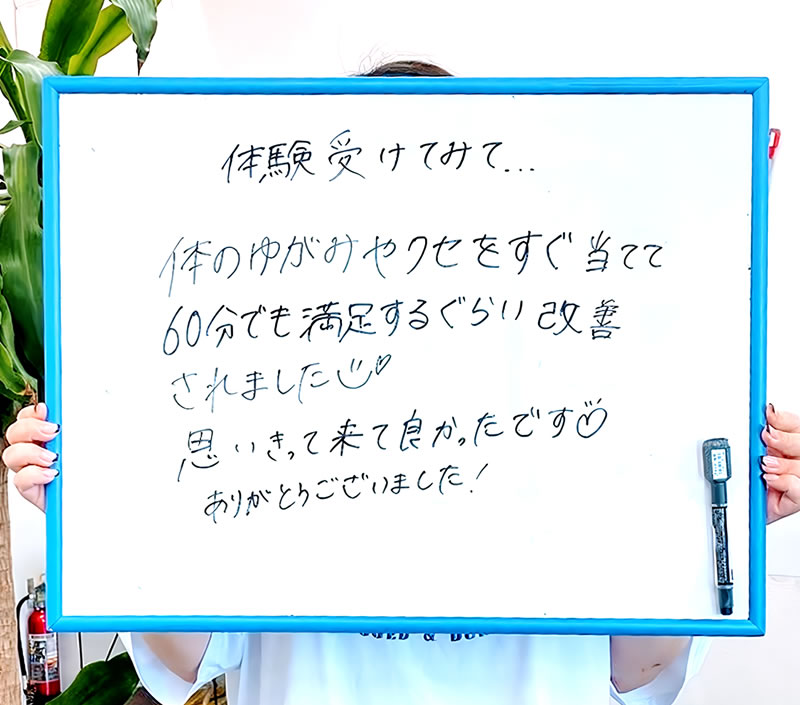 体験受けてみて...
体のゆがみやクセをすぐ当てて
60分でも満足するぐらい改善
されました
思いきって来て良かったです♡
ありがとうございました!